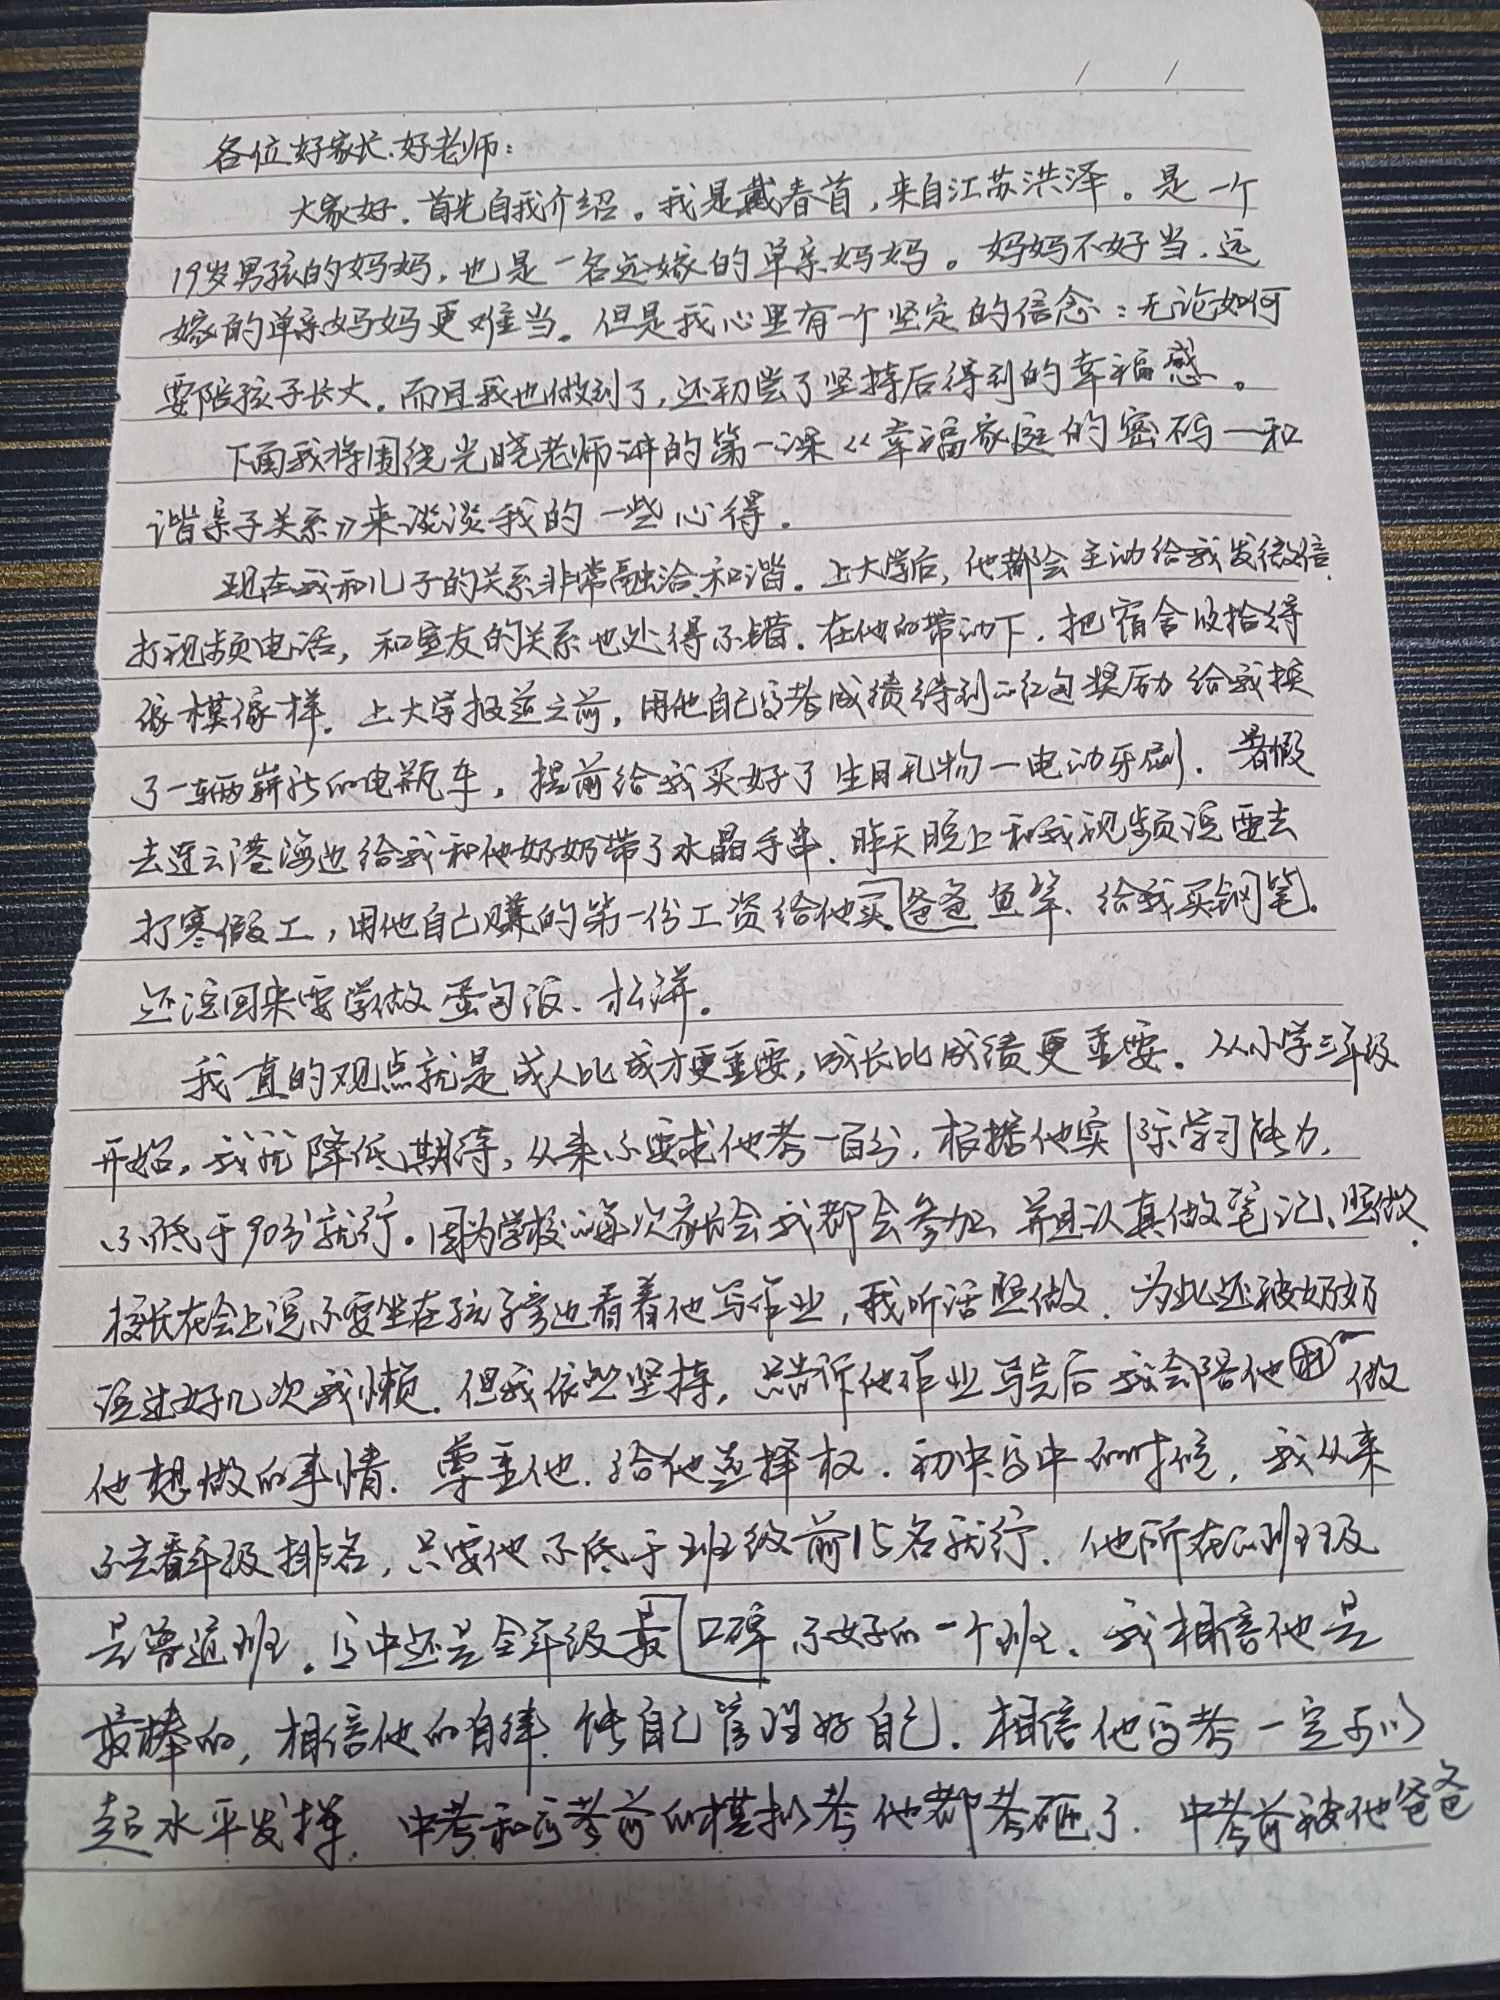 各位好家长、好老师：
大家好。首先自我介绍。我是戴春首，来自江苏洪泽。是一个
19岁男孩的妈妈，也是一名远嫁的单亲妈妈。妈妈不好当，远
嫁的单亲妈妈更难当。但是我心里有一个坚定的信念：无论如何
要陪孩子长大。而且我也做到了，还初尝了坚持后得到的幸福感。
下面我将围绕光晓老师讲的第一课《幸福家庭的密码—和
谐亲子关系》来谈谈我的一些心得。
现在我和儿子的关系非常融洽、和谐。上大学后，他都会主动给我发微信、
打视频电话，和室友的关系也处得不错。在他的带动下，把宿舍收拾得
像模像样。上大学报道之前，用他自己高考成绩得到的红包奖励给我换
了一辆崭新的电瓶车，提前给我买好了生日礼物—电动牙刷。暑假
去连云港海边给我和他奶奶带了水晶手串。昨天晚上和我视频说要去
打寒假工，用他自己赚的第一份工资给他买爸爸鱼竿、给我买钢笔。
还说回来要学做蛋包饭、松饼。
我一直的观点就是成人比成才更重要，成长比成绩更重要。从小学三年级
开始，我就降低期待，从来不要求他考一百分，根据他实际学习能力，
不低于90分就行。因为学校的每次家长会我都会参加、并且认真做笔记、照做。
校长在会上说不要坐在孩子旁边看着他写作业，我听话照做。为此还被奶奶
说过好几次我懒。但我依然坚持，只告诉他作业写完后我会陪他做
他想做的事情。尊重他、给他选择权。初中高中的时候，我从来
不去看年级排名，只要他不低于班级前15名就行。他所在的班级
是普通班。高中还是全年级最口碑不好的一个班。我相信他是
最棒的，相信他的自律、能自己管理好自己。相信他高考一定可以
超水平发挥。中考和高考前的模拟考他都考砸了。中考前被他爸爸